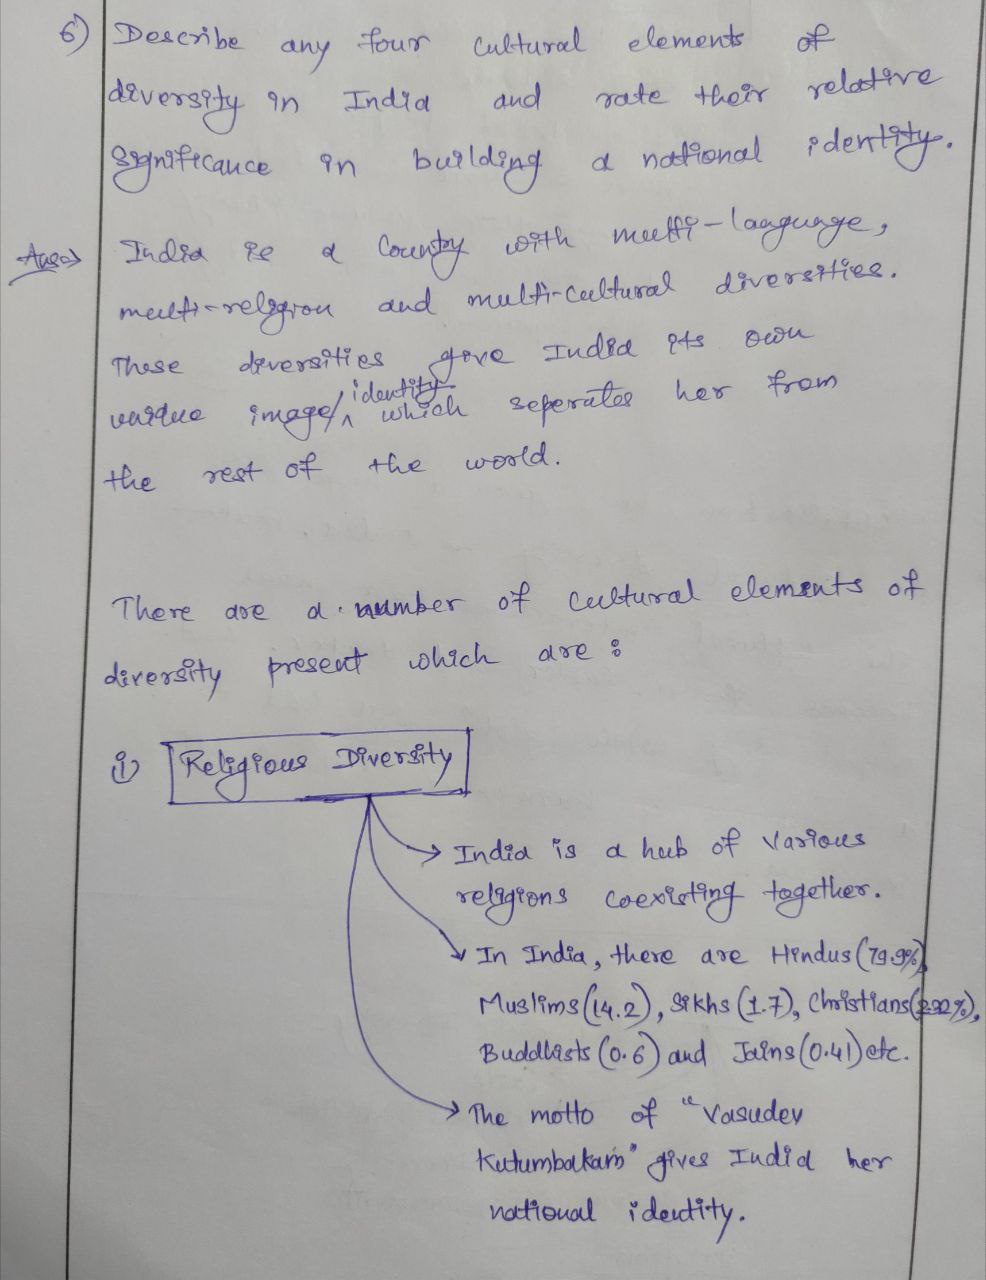 6) Describe any four cultural elements of
diversity in India and rate their relative
significance in building a national identity.
Ans) India is a Country with multi-language,
multi-religion and multi-cultural diversities.
These diversities give India its own
unique image/identity which seperates her from
the rest of the world.
There are a number of cultural elements of
diversity present which are :
i) Religious Diversity
India is a hub of various
religions coexisting together.
In India, there are Hindus (79.9%)
Muslims (14.2), Sikhs (1.7), Christians
Buddhists (0.6) and Jains (0.41) etc.
The motto of "Vasudev
Kutumbakam" gives India her
national identity.